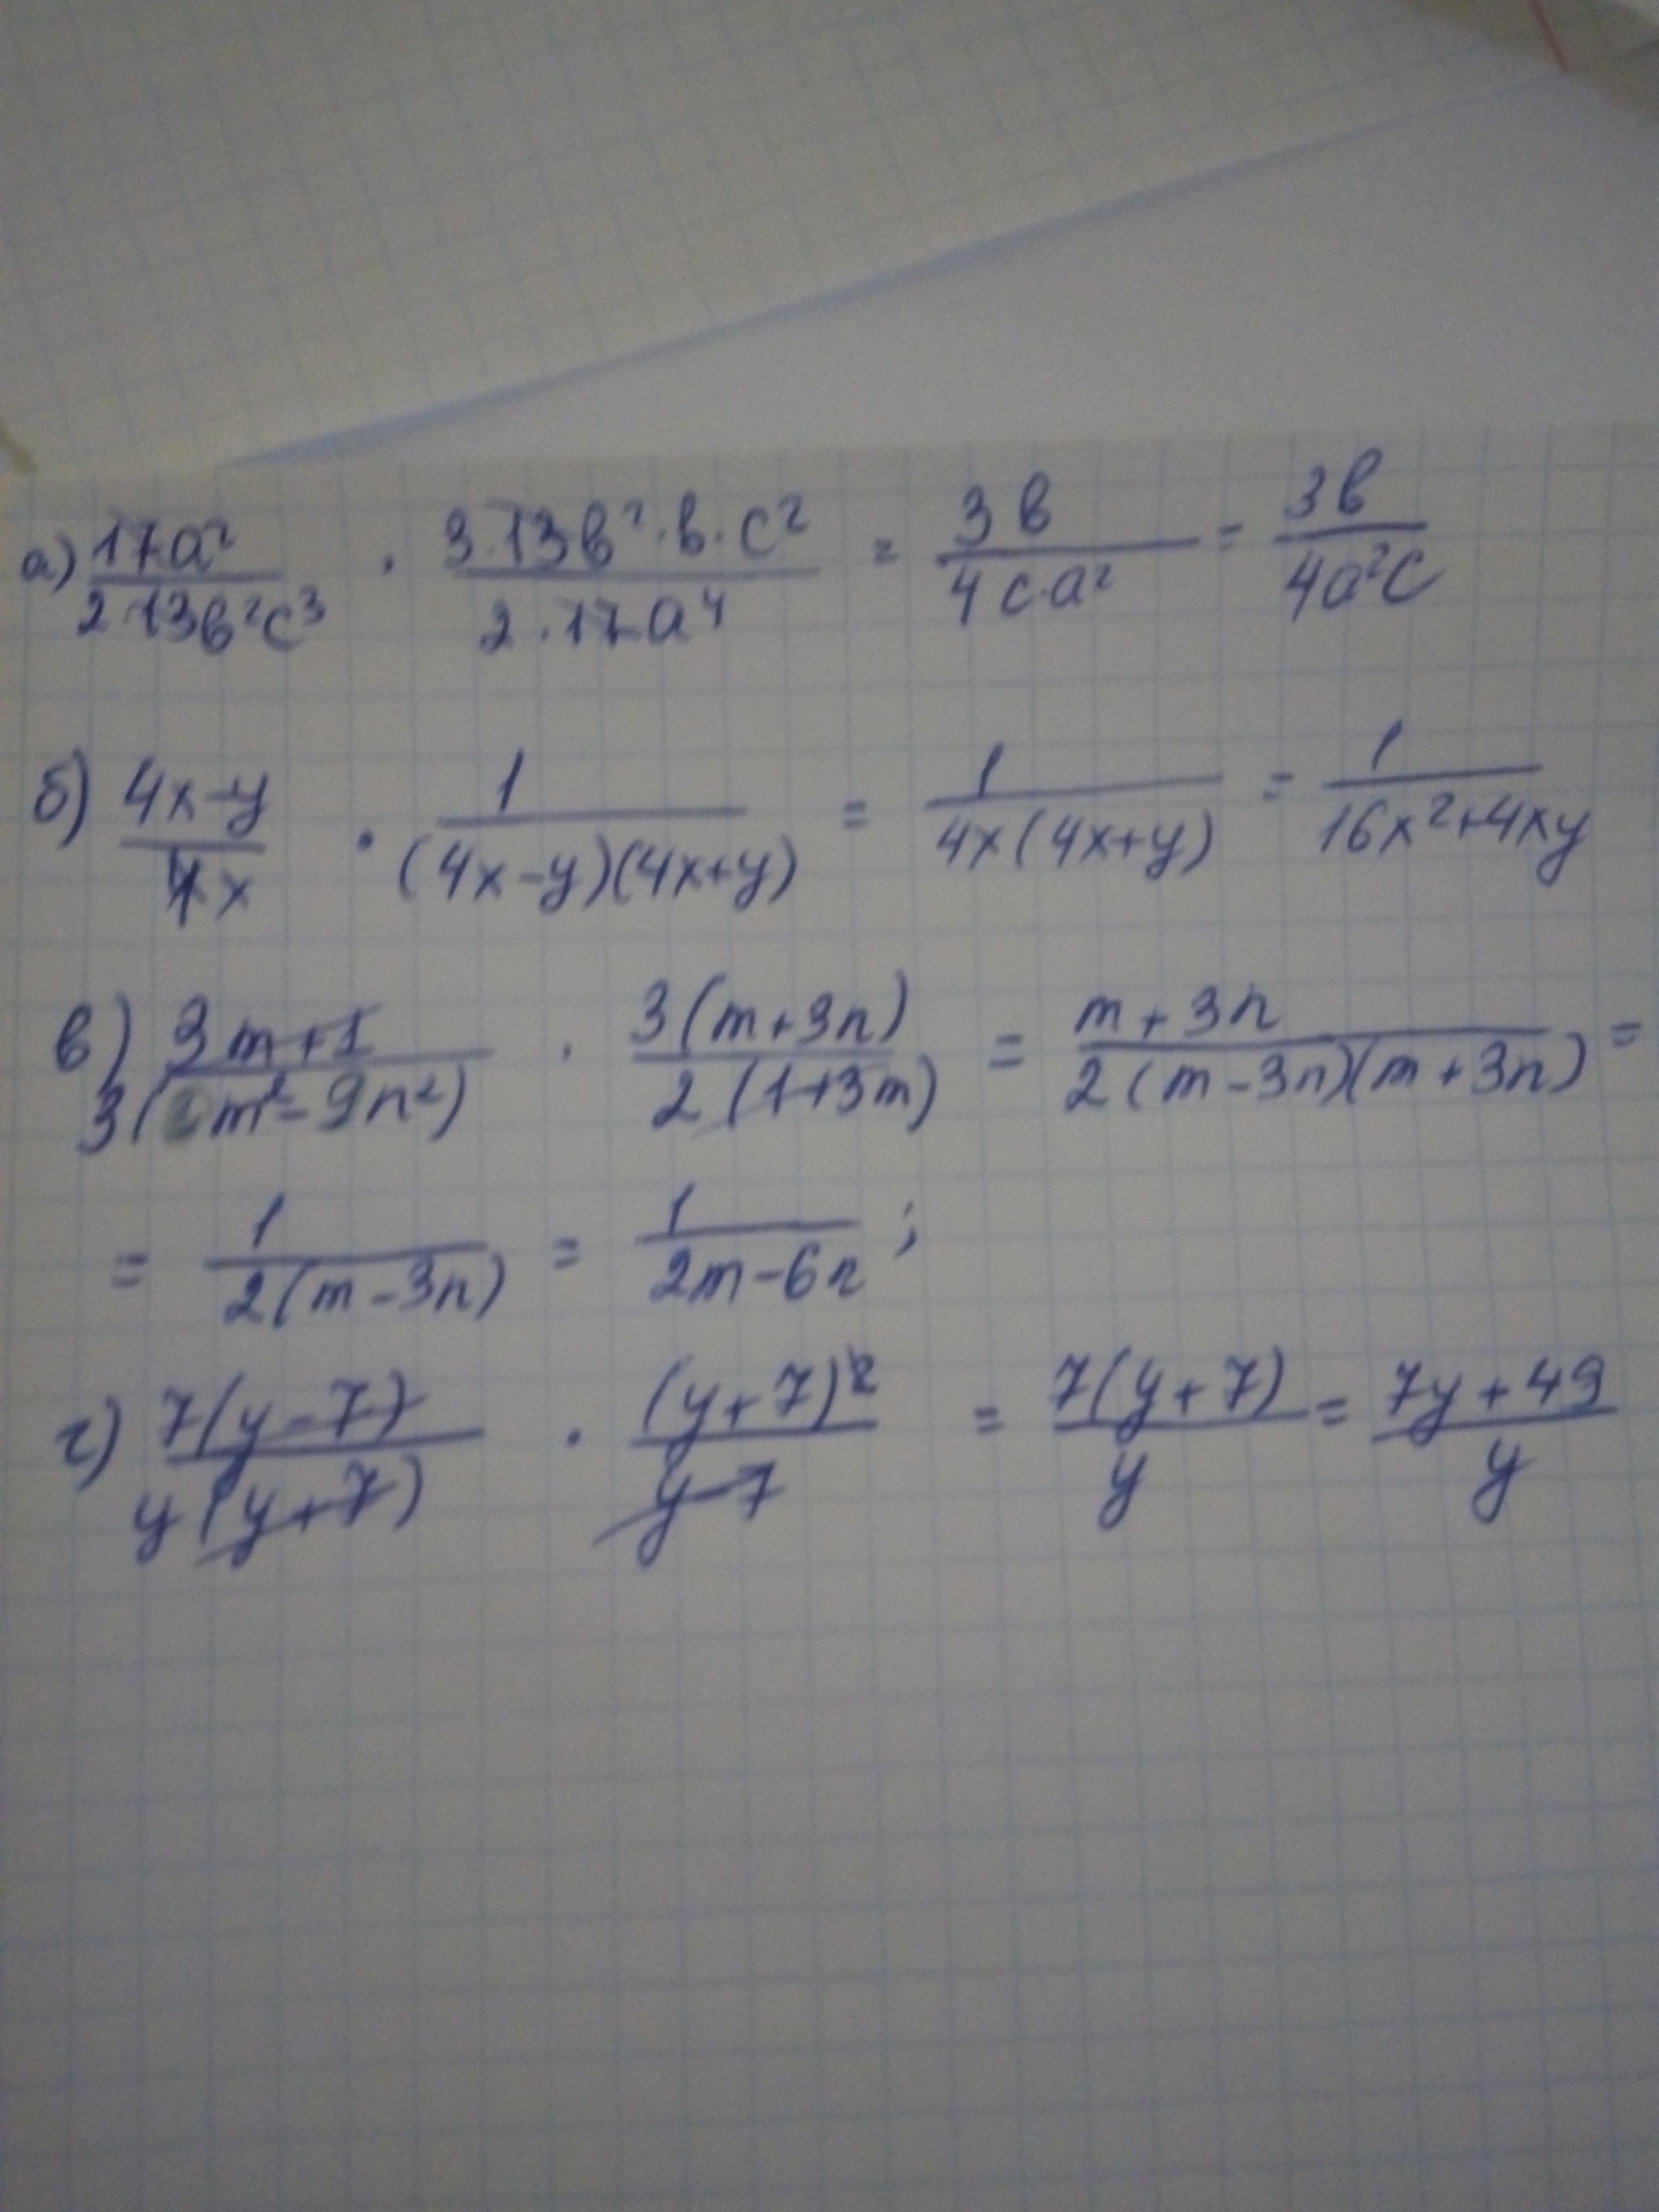 а) 17a²/(2·13b²c³) · (3·13b²·b·c²)/(2·17a⁴) = 3b/(4c·a²) = 3b/(4a²c)
б) (4x-y)/(4x) · 1/((4x-y)(4x+y)) = 1/(4x(4x+y)) = 1/(16x²+4xy)
в) (3m+1)/(3(m²-9n²)) · 3(m+3n)/(2(1+3m)) = (m+3n)/(2(m-3n)(m+3n)) =
= 1/(2(m-3n)) = 1/(2m-6n);
г) 7(y-7)/(y(y+7)) · (y+7)²/(y-7) = 7(y+7)/y = (7y+49)/y